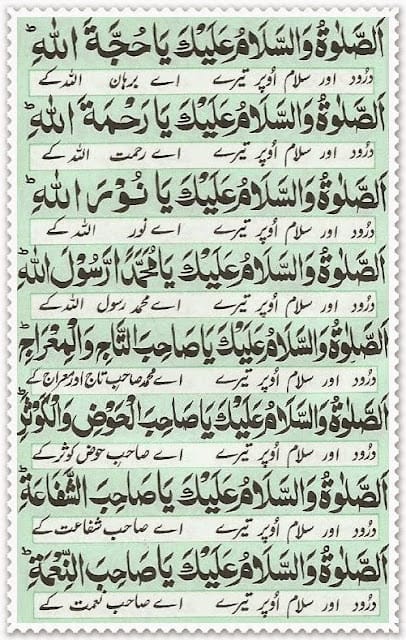 اَلصَّلٰوةُ وَالسَّلَامُ عَلَيْكَ يَا حُجَّةَ اللهِ ط
درُود اور سلام اُوپر تیرے اے برہان اللہ کے
اَلصَّلٰوةُ وَالسَّلَامُ عَلَيْكَ يَا رَحْمَةَ اللهِ ط
درُود اور سلام اُوپر تیرے اے رحمت اللہ کے
اَلصَّلٰوةُ وَالسَّلَامُ عَلَيْكَ يَا نُوْرَ اللهِ ط
درُود اور سلام اُوپر تیرے اے نور اللہ کے
اَلصَّلٰوةُ وَالسَّلَامُ عَلَيْكَ يَا مُحَمَّدًا رَّسُوْلَ اللهِ ط
درُود اور سلام اُوپر تیرے اے محمد رسول اللہ کے
اَلصَّلٰوةُ وَالسَّلَامُ عَلَيْكَ يَا صَاحِبَ التَّاجِ وَالْمِعْرَاجِ ط
درُود اور سلام اُوپر تیرے اے محمد صاحبِ تاج اور معراج کے
اَلصَّلٰوةُ وَالسَّلَامُ عَلَيْكَ يَا صَاحِبَ الْحَوْضِ وَالْكَوْثَرِ ط
درُود اور سلام اُوپر تیرے اے صاحبِ حوض کوثر کے
اَلصَّلٰوةُ وَالسَّلَامُ عَلَيْكَ يَا صَاحِبَ الشَّفَاعَةِ ط
درُود اور سلام اُوپر تیرے اے صاحب شفاعت کے
اَلصَّلٰوةُ وَالسَّلَامُ عَلَيْكَ يَا صَاحِبَ النِّعْمَةِ ط
درُود اور سلام اُوپر تیرے اے صاحب نعمت کے